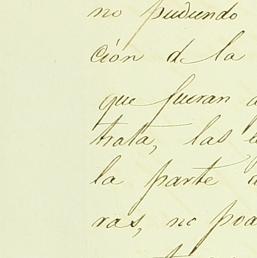 no pudiendo
ción d la
que fueran
trata, las
la parte
ras, no